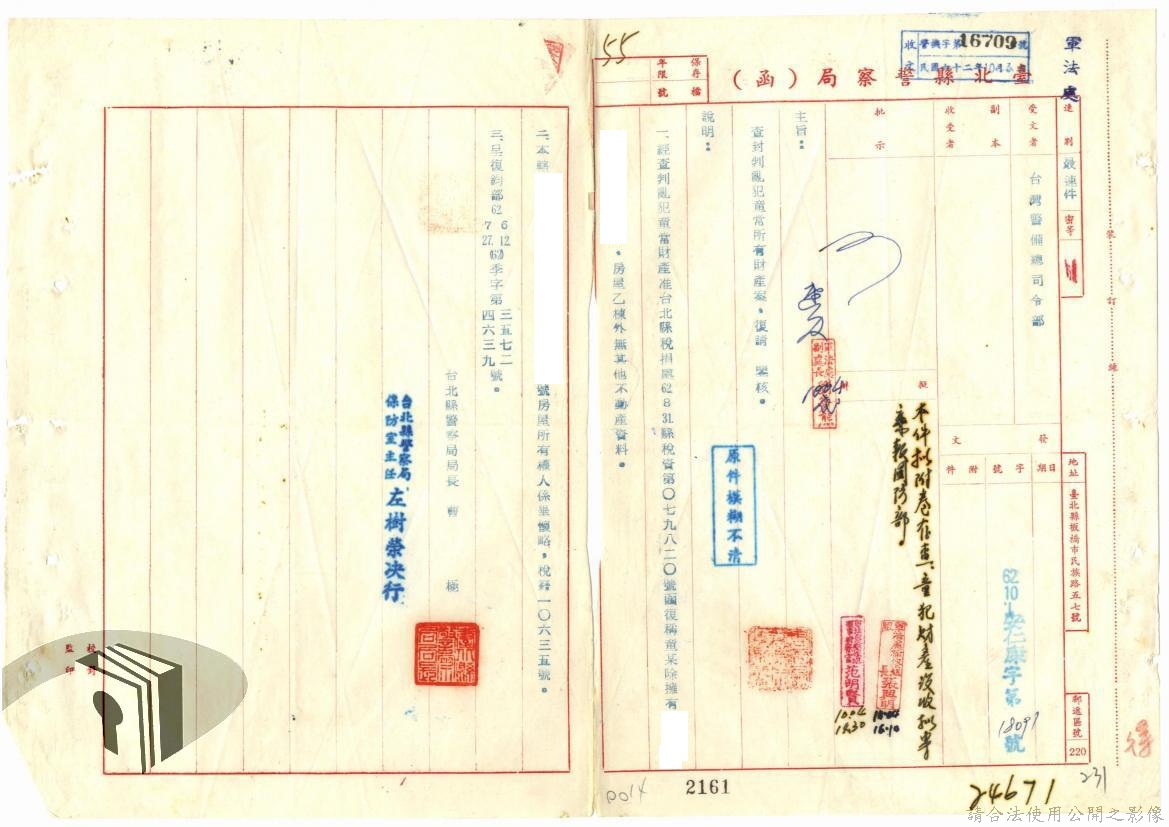 軍法處
收文
警機字第16709號
民國六十二年10月3日
臺北縣警察局(函)
保存年限
檔號
55
受文者
台灣警備總司令部
副本收受者
速別
最速件
密等
批示
擬辦
發文
日期
字號
附件
62.10.1
安仁康字第18097號
地址
臺北縣板橋市民族路五七號
郵遞區號
220
裝訂線
主旨:
查封判亂犯童常所有財產案,復請 鑒核。
說明:
一、經查判亂犯童常財產准台北縣稅捐處62 8 31縣稅資第〇七九八二〇號函復稱童某除擁有
。房屋乙棟外無其他不動產資料。
二、本轄
號房屋所有權人係
稅籍一〇六三五號。
三、呈復鈞部62 6 12. 7 27.(62)季字第三五七二 四六三九號。
台北縣警察局局長 曹 極
台北縣警察局
保防室主任
左樹榮決行
原件模糊不清
本件擬附卷存查,童犯財產沒收拟
案報國防部。
軍法處副處長
范明賢
10.04
張興明
16.10
校對
監印
2161
24671
231
請合法使用公開之影像